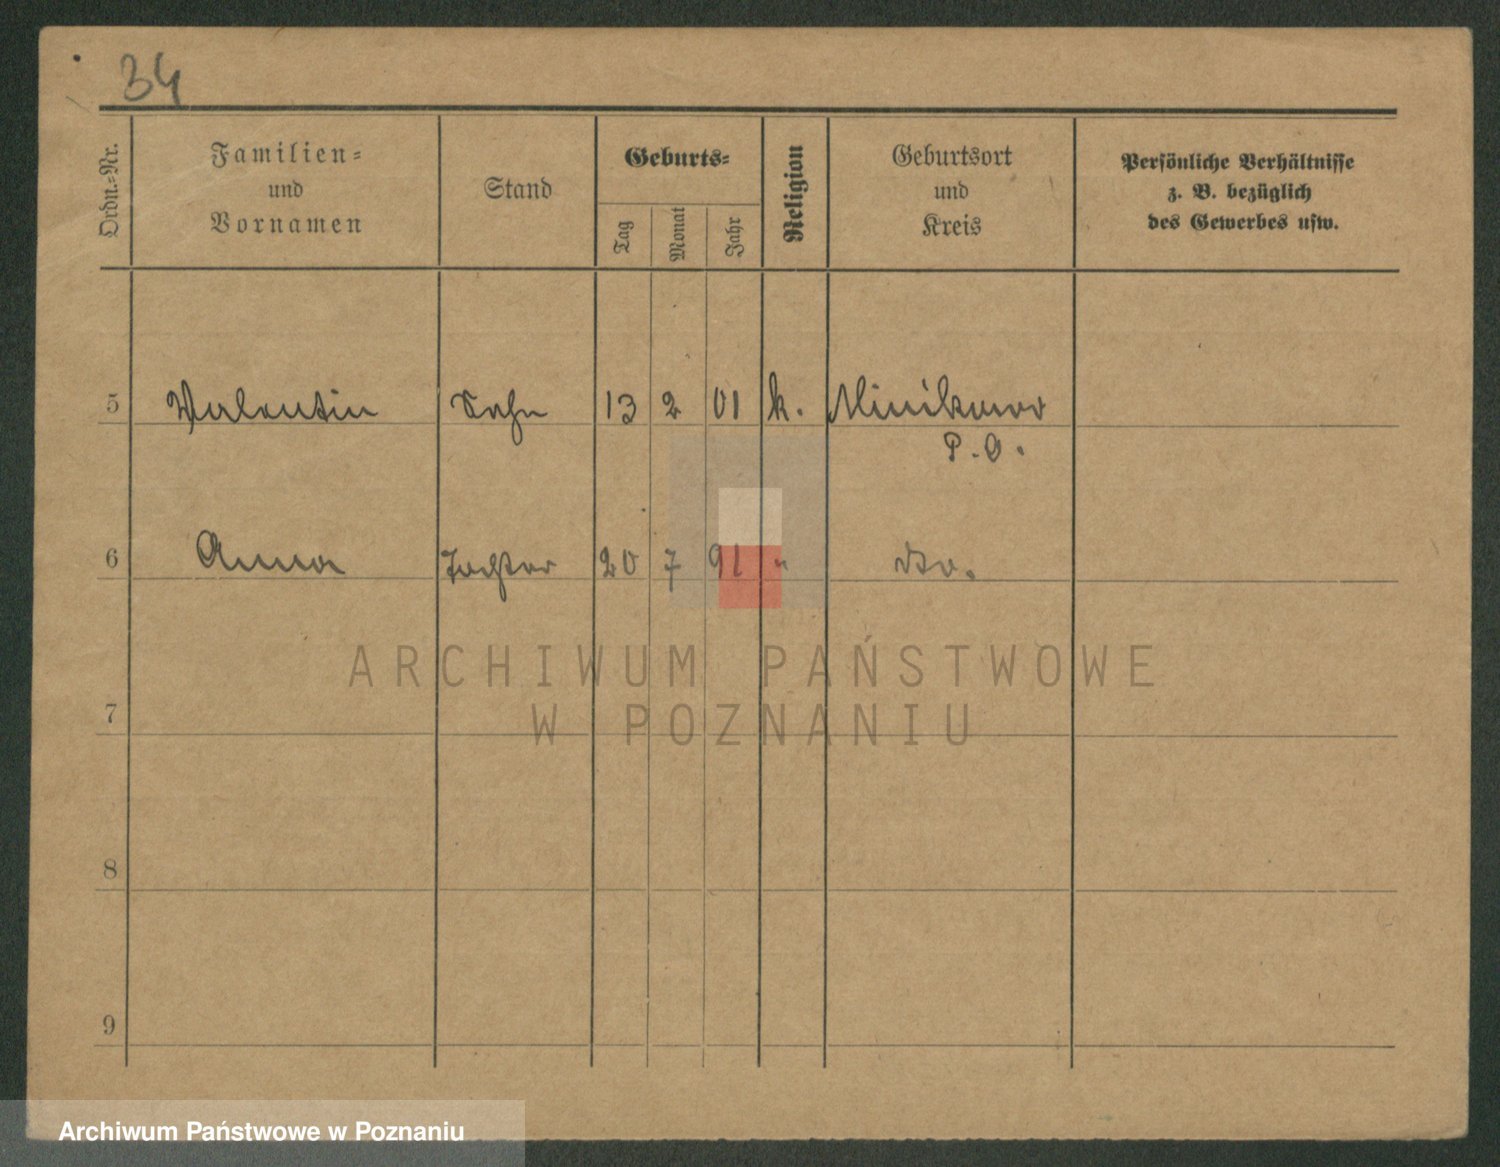 34
Ordn.-Nr.
Familien-
und
Vornamen
Stand
Geburts-
Tag
Monat
Jahr
Religion
Geburtsort
und
Kreis
Persönliche Verhältnisse
z. B. bezüglich
des Gewerbes usw.
5 Valentin Sohn 13 2 01 k. Minikowo
P. O.
6 Anna Tochter 20 7 91 " do.
ARCHIWUM PAŃSTWOWE
W POZNANIU
7
8
9
Archiwum Państwowe w Poznaniu